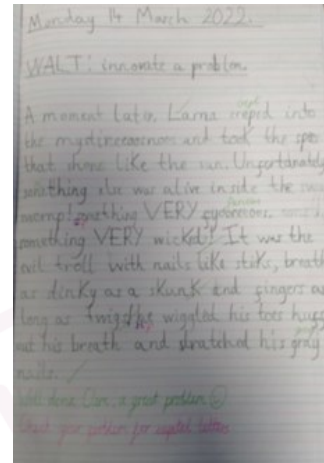 Monday 14 March 2022.
WALT: innovate a problem.
A moment later, Lama into
the and took the
that shone like the sun. Unfortunately
something else was alive inside the
something VERY
something VERY wicked! It was the
evil troll with nails like stiks, breath
as stinky as a skunk and fingers as
long as twigs. He wiggled his toes
out his breath and stratched his gray
nails.
Well done a great problem
Check your problem for capital letters